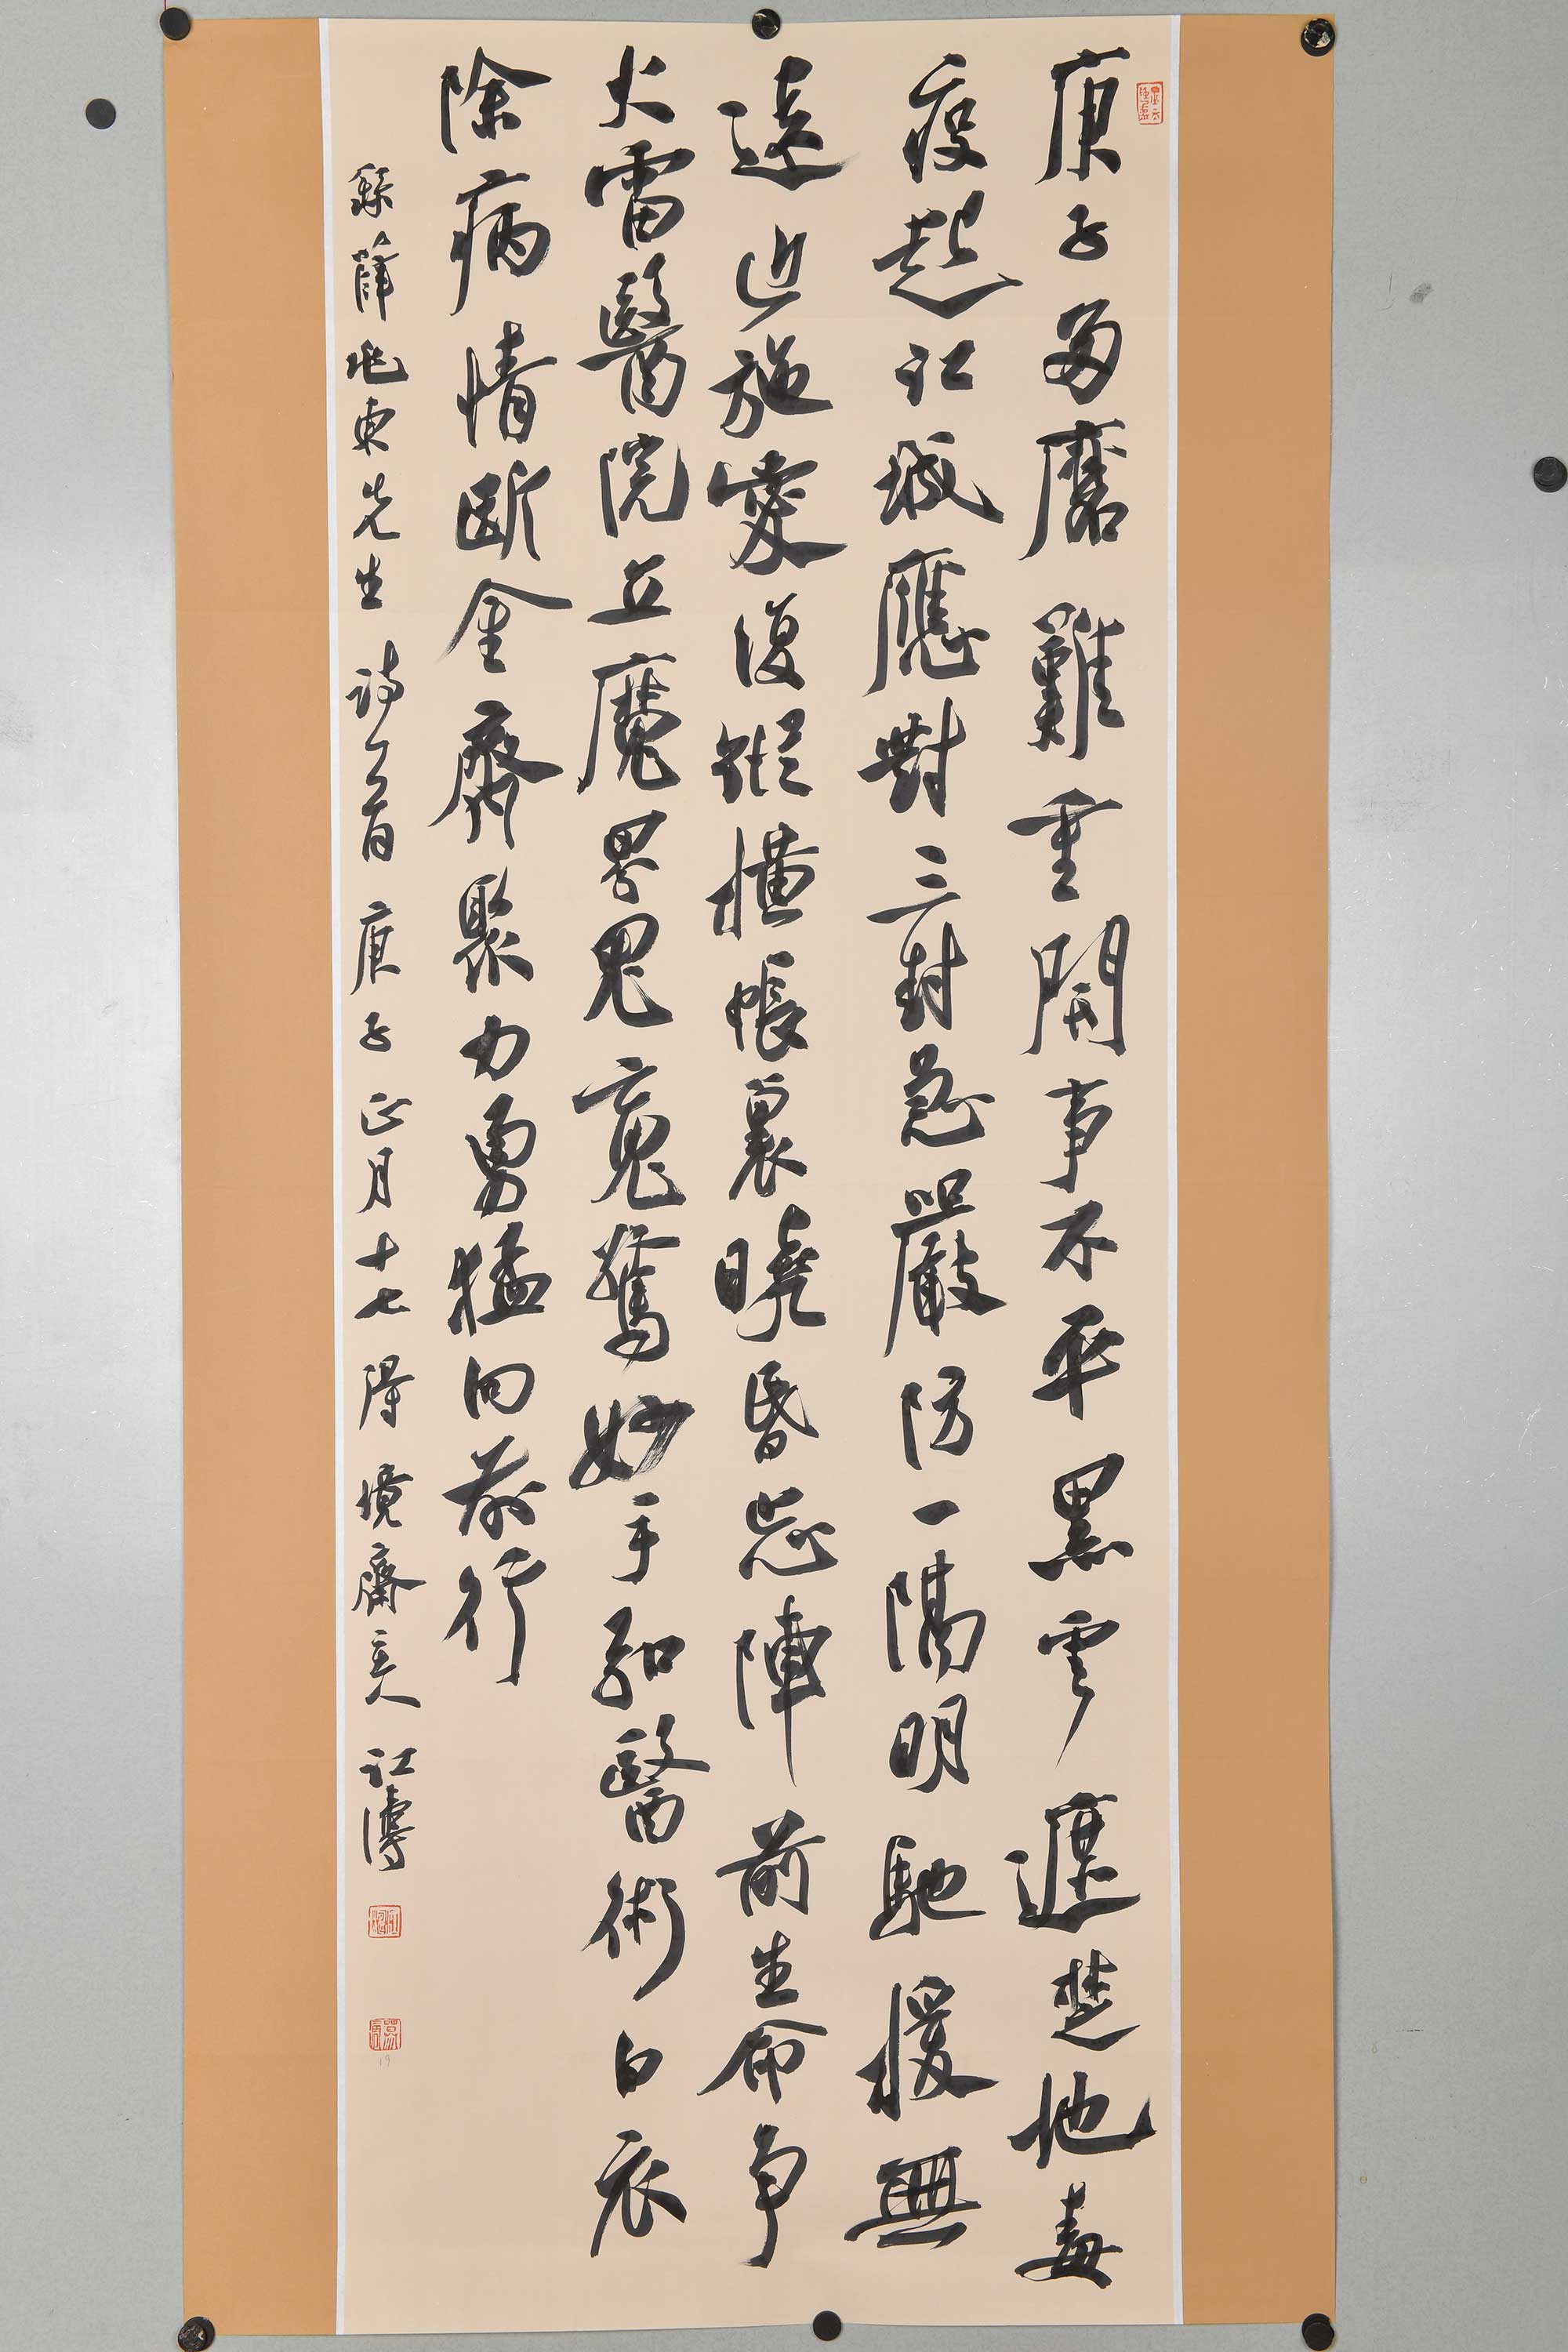 庚子多磨難重開事不平黑雲遮楚地毒
疫起江城應對三封急嚴防一隔明馳援無
遠近施愛復縱橫帳裏曉昏忘陣前生命爭
火雷醫院立魔界鬼魂驚妙手和醫術白衣
除病情斷金齊聚力勇猛向前行
錄薛兆東先生詩一首庚子正月十七得境齋主人江濤